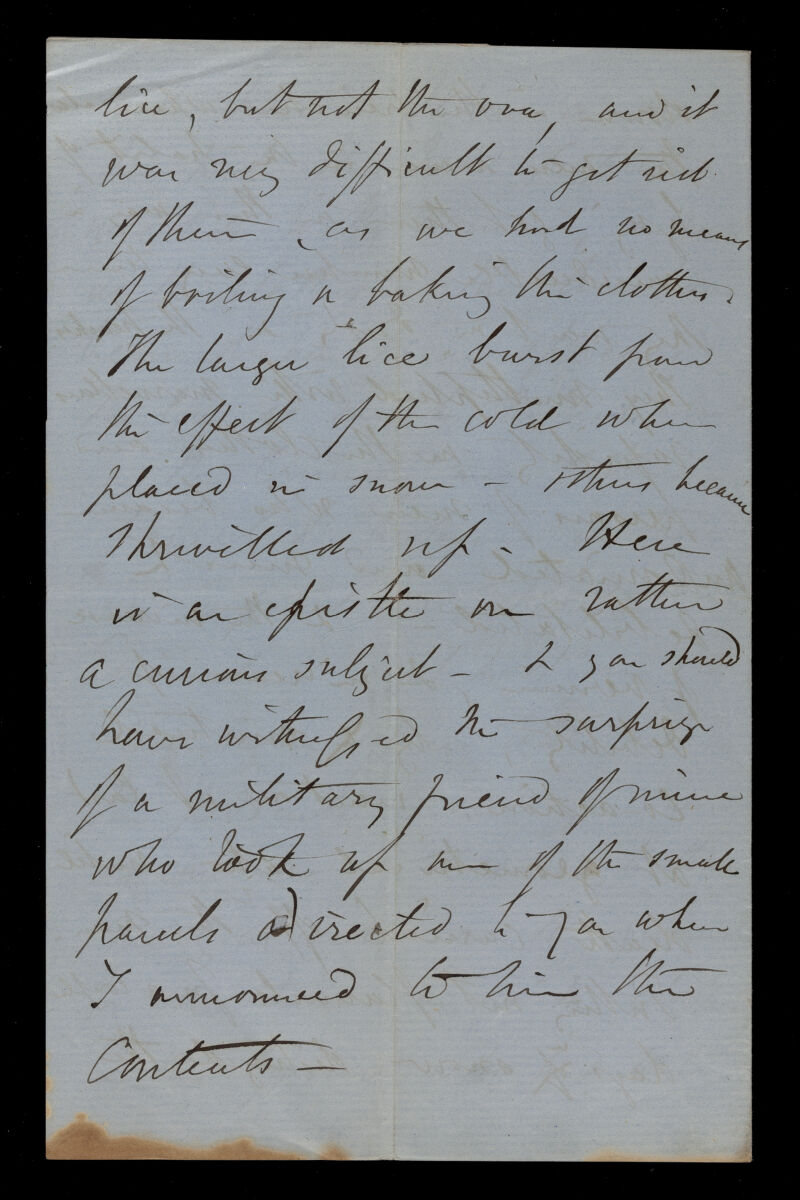 lice, but not the ova, and it
was very difficult to get rid
of them, as we had no means
of boiling or baking the clothes.
The larger lice burst from
the effect of the cold when
placed in snow – others became
shrivelled up – Here
is an epistle on rather
a curious subject – & you should
have witnessed the surprise
of a military friend of mine
who took up one of the small
parcels directed to you when
I announced to him the
Contents –